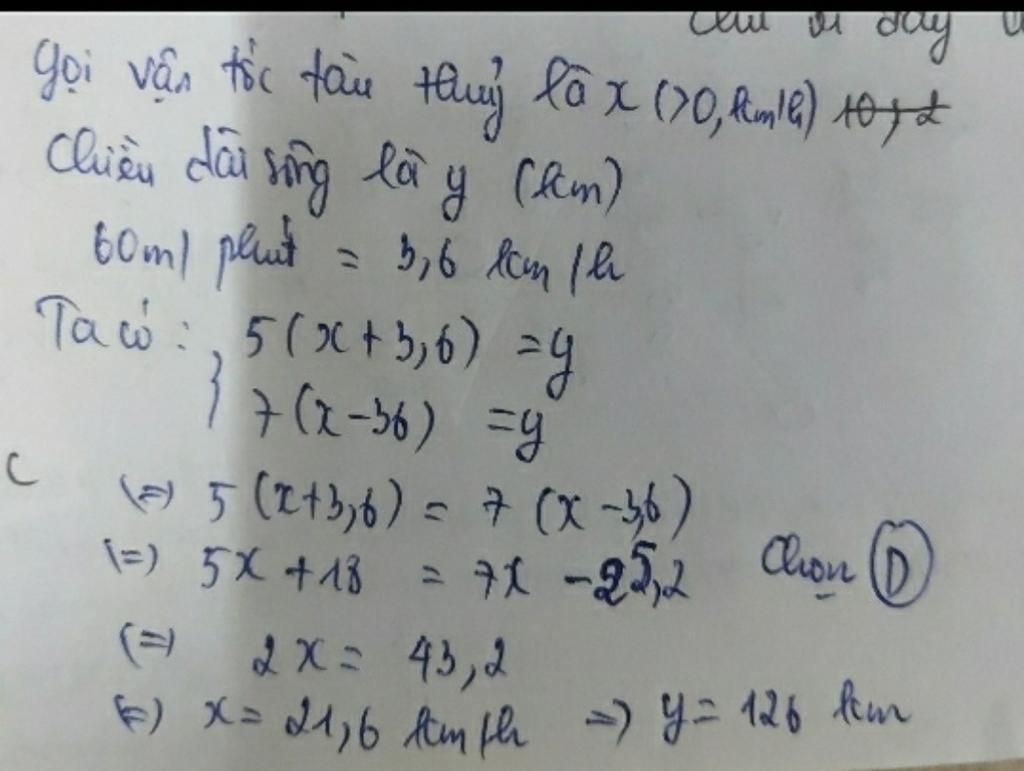 Câu
dây
Gọi vận tốc tàu thuỷ là x (>0, km/h) 10, 2
Chiều dài sông là y (km)
60m/ phút = 3,6 km/h
Ta có: 5(x+3,6) = y
7(x-36) = y
C
(=) 5(x+3,6) = 7 (x-3,6)
(=) 5x +18 = 7x - 25,2 Chọn D
(=) 2x = 43,2
(=) x = 21,6 km/h => y = 126 km